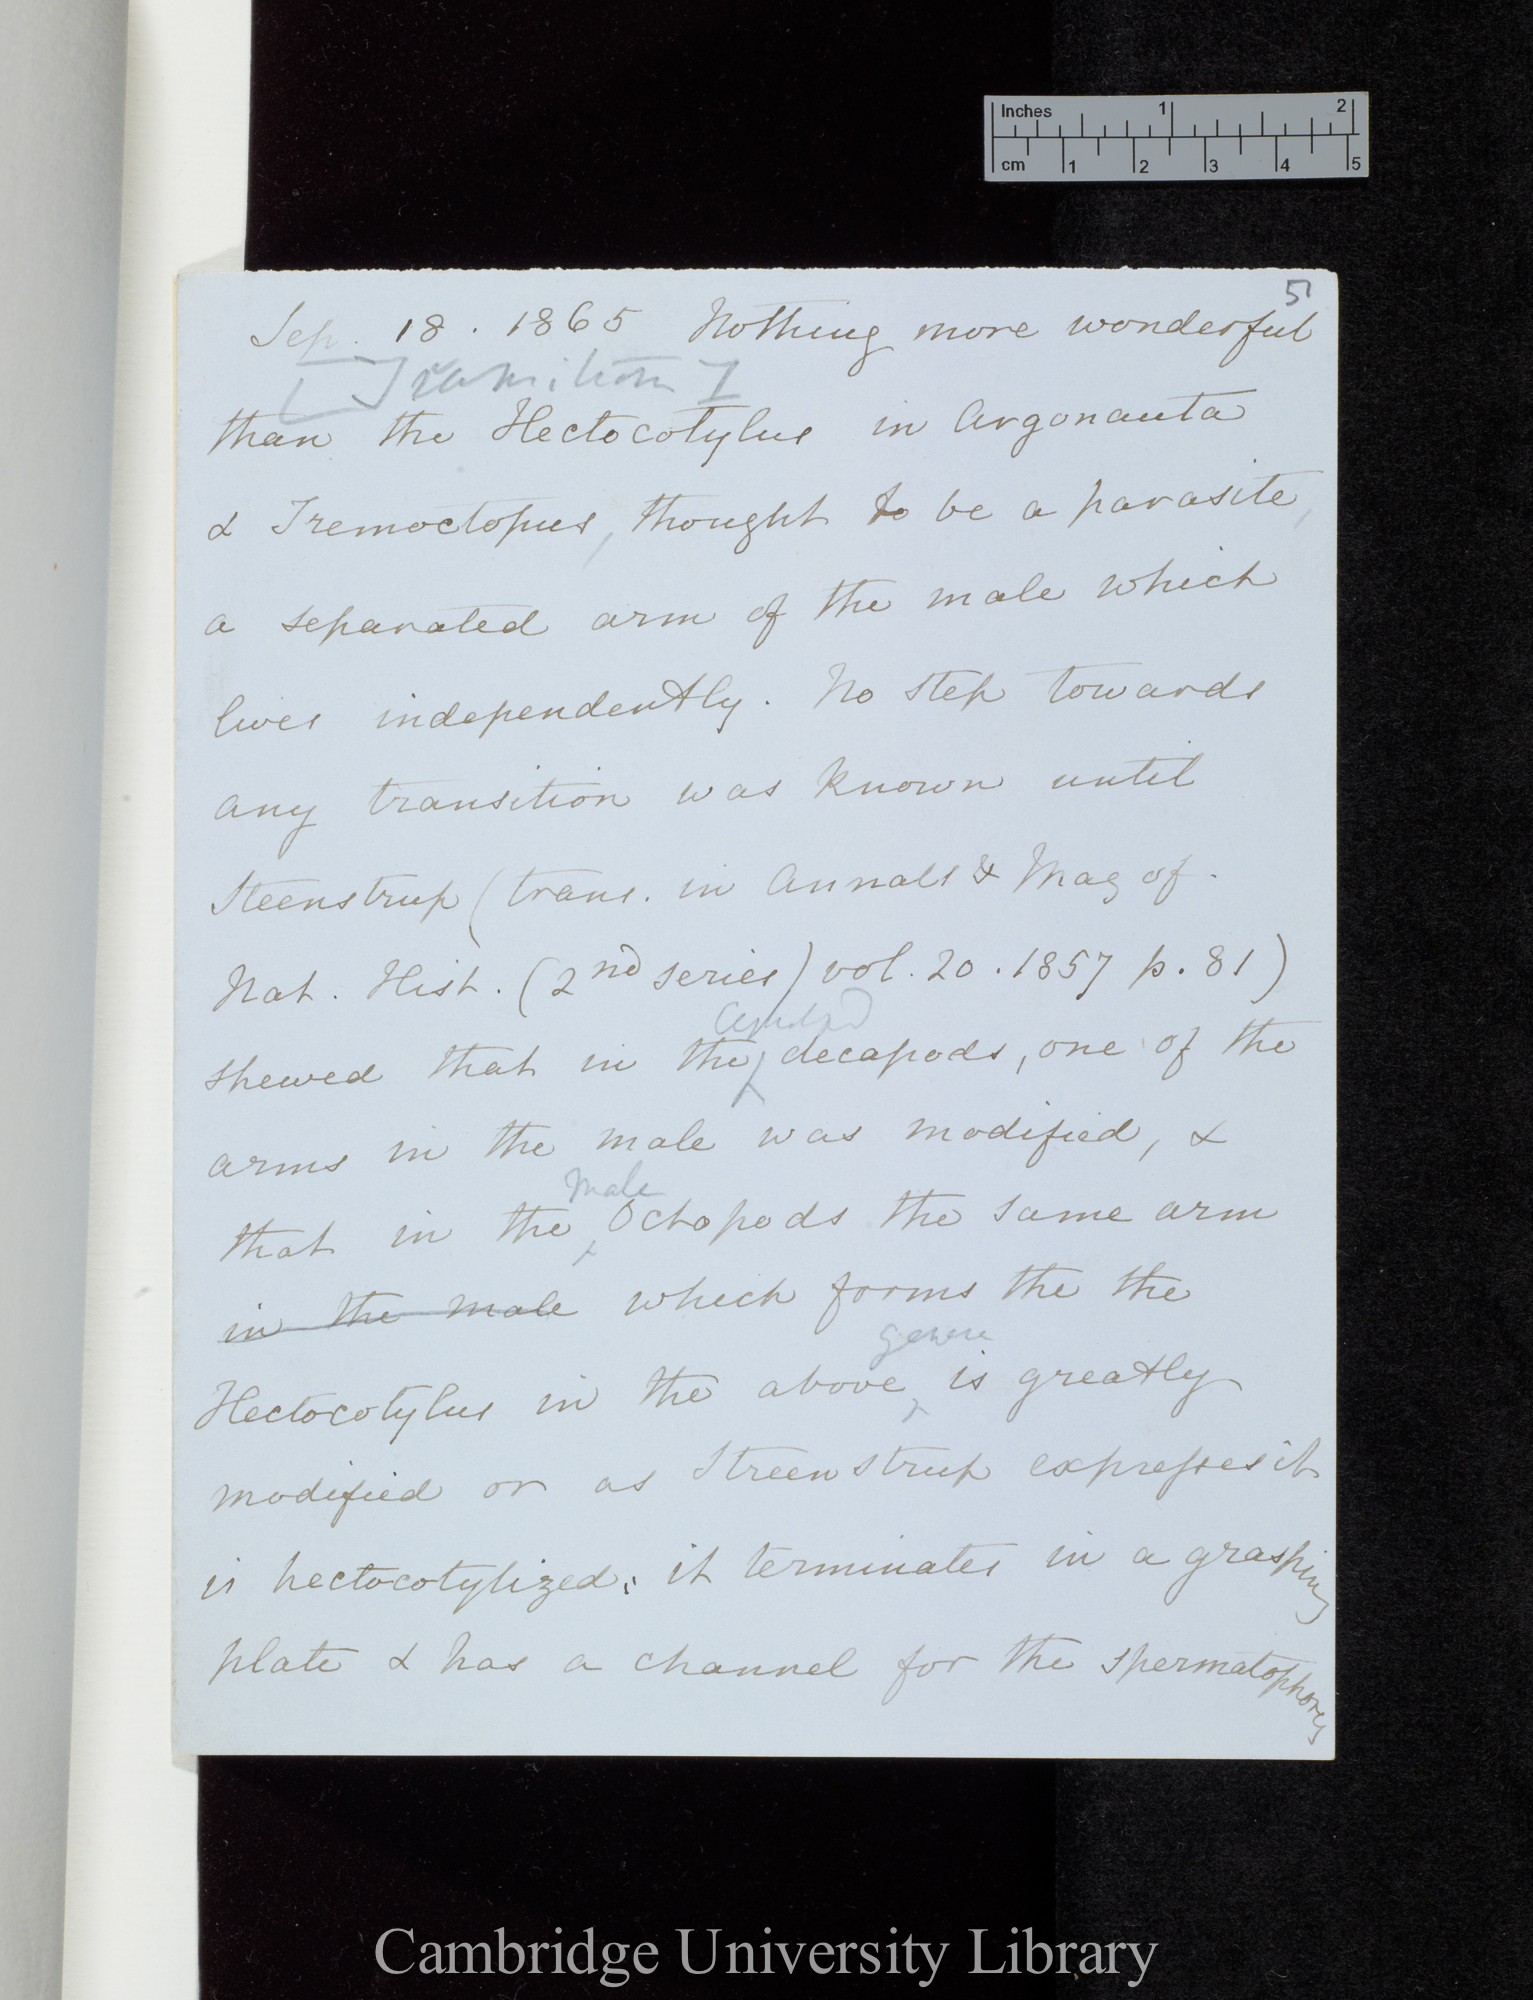 Inches 1 2
cm 1 2 3 4 5
5
Sep. 18. 1865 Nothing more wonderful
[Transition]
than the Hectocotylus in Argonauta
& Tremoctopus, thought to be a parasite,
a separated arm of the male which
lives independently. No step towards
any transition was known until
Steenstrup (trans. in Annals & Mag of.
Nat. Hist. (2nd series) vol. 20. 1857 p. 81)
shewed that in the decapods, one of the
arms in the male was modified, &
male
that in the Octopods the same arm
in the male which forms the the
genera
Hectocotylus in the above is greatly
modified or as Streenstrup expresses it
is hectocotylized; it terminates in a grasping
plate & has a channel for the spermatophores
Cambridge University Library